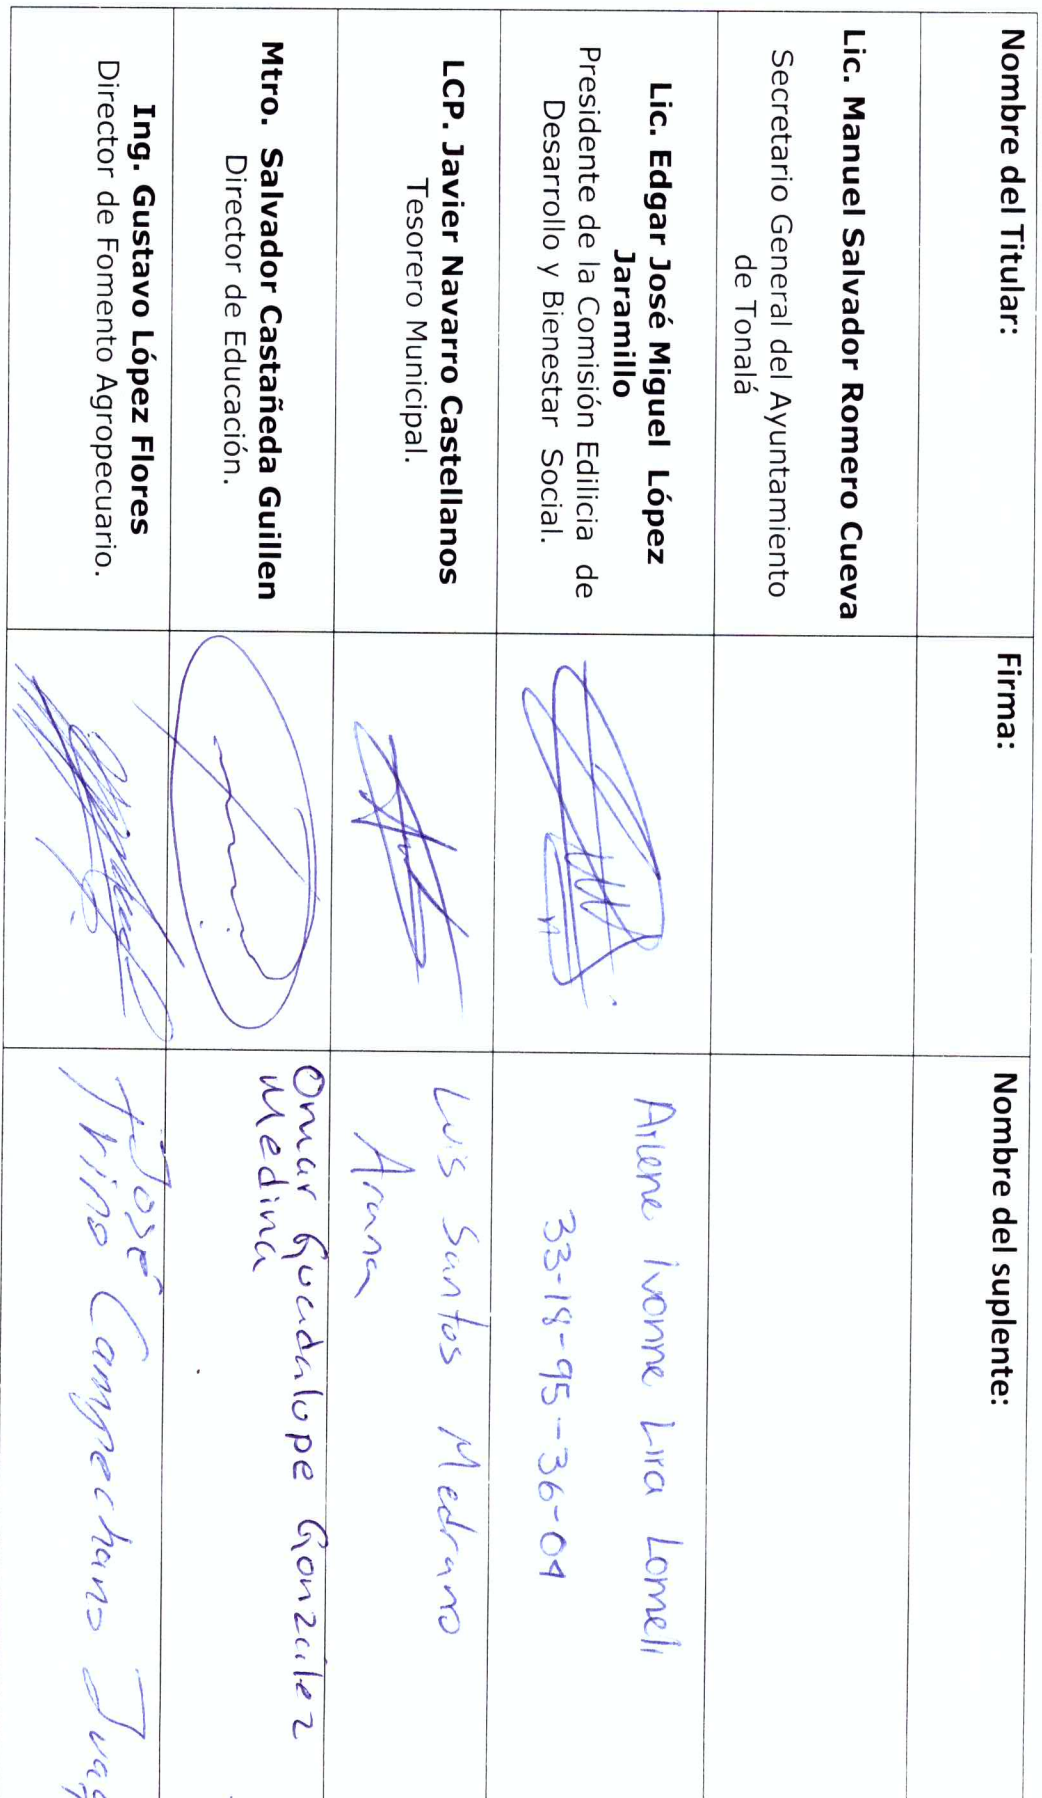 Nombre del Titular:
Firma:
Nombre del suplente:
Lic. Manuel Salvador Romero Cueva
Secretario General del Ayuntamiento
de Tonalá
Lic. Edgar José Miguel López
Jaramillo
Presidente de la Comisión Edilicia de
Desarrollo y Bienestar Social.
Arlene Ivonne Lira Lomeli
33-18-95-36-09
LCP. Javier Navarro Castellanos
Tesorero Municipal.
Luis Santos Medrano
Arana
Mtro. Salvador Castañeda Guillen
Director de Educación.
Omar Guadalupe Gonzalez
Medina
Ing. Gustavo López Flores
Director de Fomento Agropecuario.
José
Trino Campechano